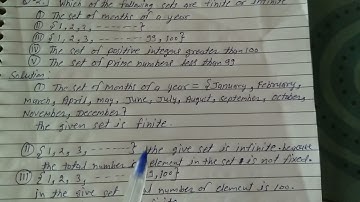 Which of the following sets are finite or infinite
(I) The set of months of a year
(II) {1, 2, 3, - - - - - - -}
(III) {1, 2, 3, - - - - - - - 99, 100}
(IV) The set of positive integers greater than 100
(V) The set of prime numbers less than 99
Solution:
(I) The set of months of a year = {January, February,
March, April, May, June, July, August, september, october,
November, December}
the given set is finite.
(II) {1, 2, 3, - - - - - - -} the give set is infinite because
the total number element in the set is not fixed.
(III) {1, 2, 3, 99, 100}
in the give set number of element is 100.